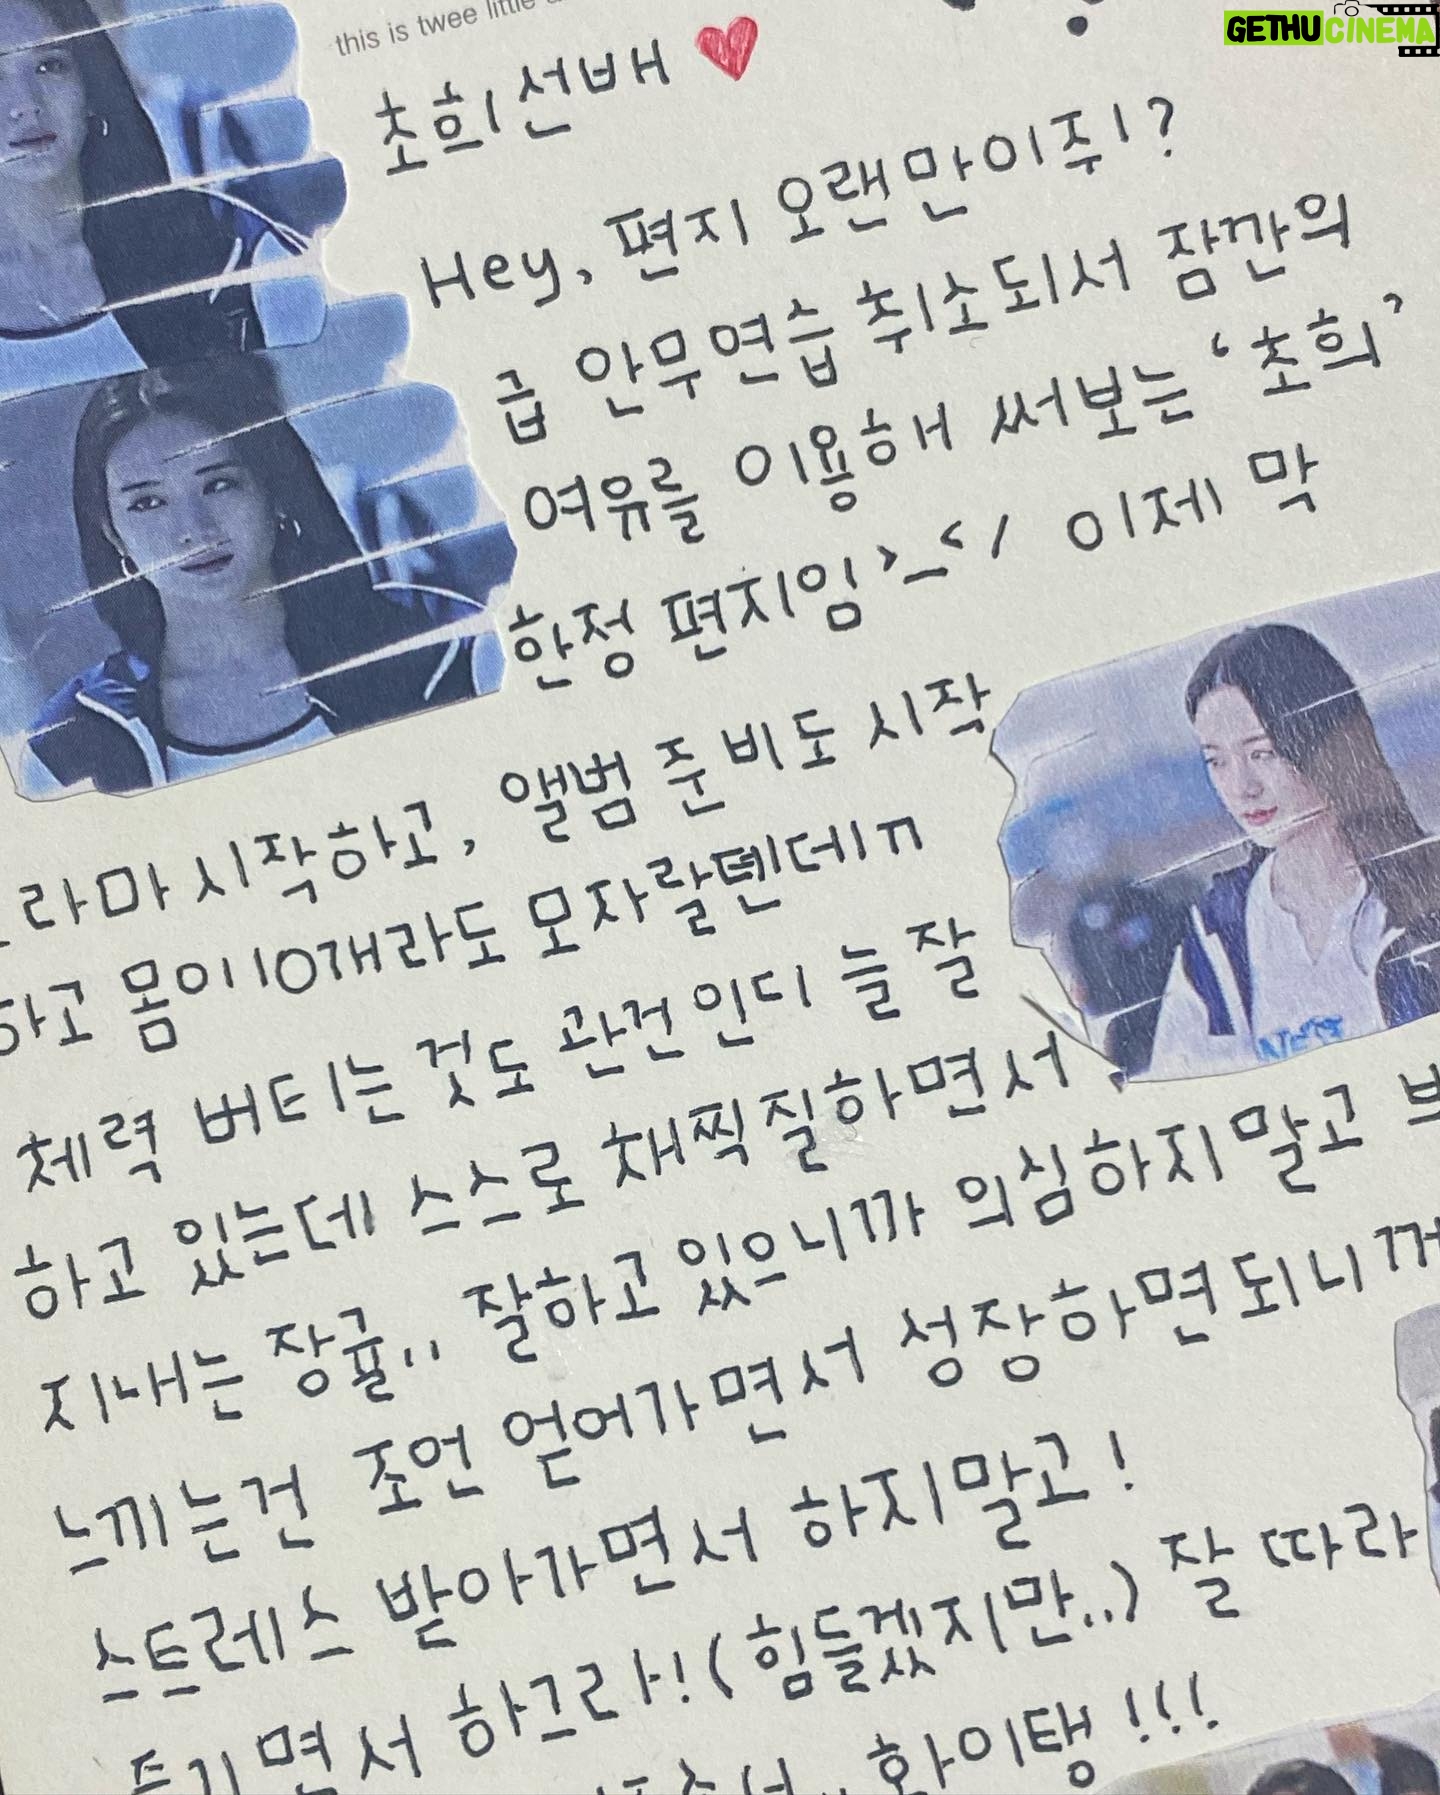 GETHUCINEMA
this is twee little
초희선배
Hey, 편지 오랜만이쥐?
급 안무연습 취소되서 잠깐의
여유를 이용해 써보는 '초희'
한정 편지임>_</ 이제 막
라마 시작하고, 앨범 준비도 시작
하고 몸이10개라도 모자랄텐데ㅠ
체력 버티는 것도 관건인디 늘 잘
하고 있는데 스스로 채찍질하면서
지내는 장규.. 잘하고 있으니까 의심하지말고
느끼는건 조언 얻어가면서 성장하면되니께
스트레스 받아가면서 하지말고!
즐기면서 하그라!(힘들겠지만..) 잘 따라
화이탱!!!